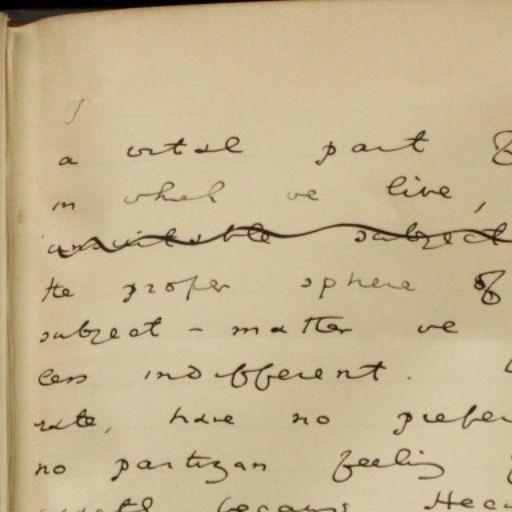 a vital part of
in which we live,
unsuitable subject
the proper sphere of
subject-matter we
less indifferent.
rate, have no prefer
no partizan feeling
because Hecu